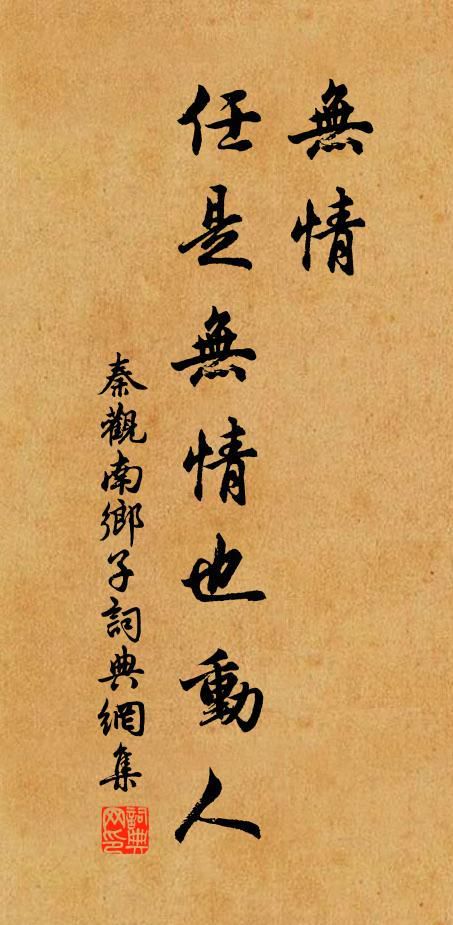 無情
任是無情也動人
秦觀南鄉子詞典網集
詞典網印